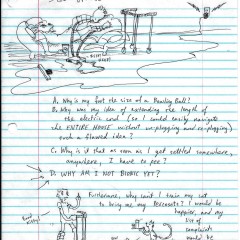 A. Why is my foot the size of a Bowling Ball?
B. Why was my idea of extending the length of
the electric cord (so I could easily navigate
the ENTIRE HOUSE without un-plugging and re-plugging)
such a flawed idea?
C. Why is it that as soon as I get settled somewhere,
anywhere, I have to pee?
D. WHY AM I NOT BIONIC YET?
Furthermore, why can't I train my cat
to bring me my Percocets? I would be
happier, and my
list of
complaints
would be